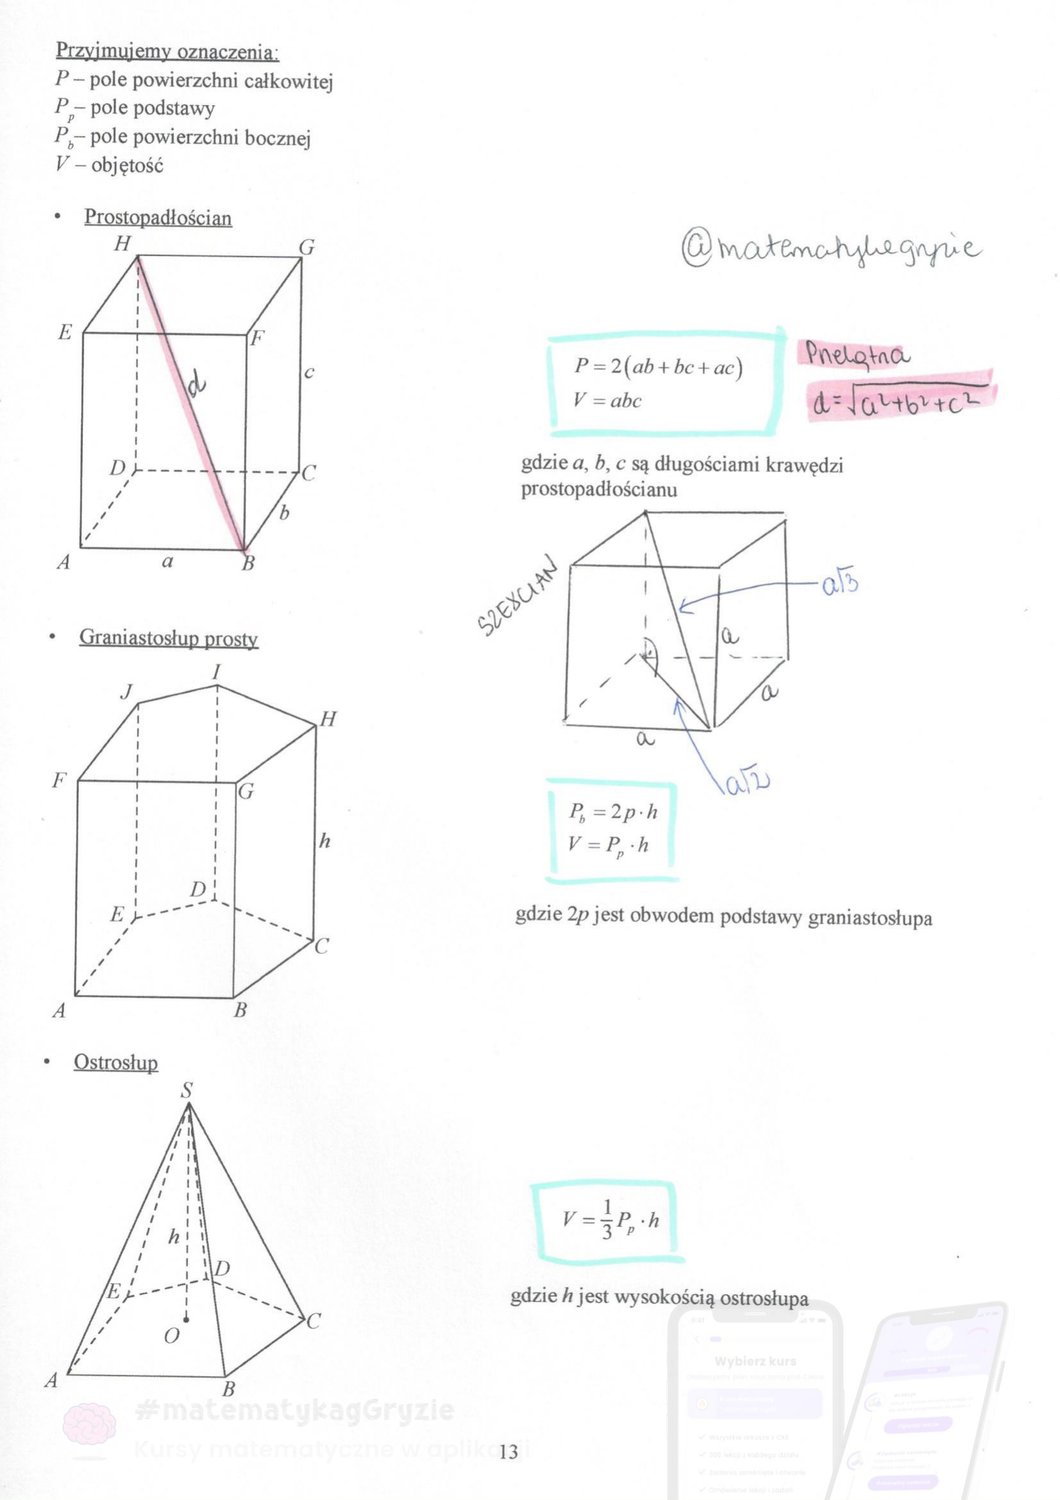 Przyjmujemy oznaczenia:
P – pole powierzchni całkowitej
P_p – pole podstawy
P_b – pole powierzchni bocznej
V – objętość
• Prostopadłościan
@matematykegryzie
H
G
E
F
c
d
D
C
b
A
a
B
P = 2(ab + bc + ac)
V = abc
Przekątna
d = √a²+b²+c²
gdzie a, b, c są długościami krawędzi
prostopadłościanu
SZEŚCIAN
a√3
a
a
a
a√2
• Graniastosłup prosty
I
J
H
F
G
h
D
E
C
A
B
P_b = 2p · h
V = P_p · h
gdzie 2p jest obwodem podstawy graniastosłupa
• Ostrosłup
S
h
D
E
C
O
A
B
V = 1/3 P_p · h
gdzie h jest wysokością ostrosłupa
Wybierz kurs
#matematykagGryzie
Kursy matematyczne w aplikacji
13